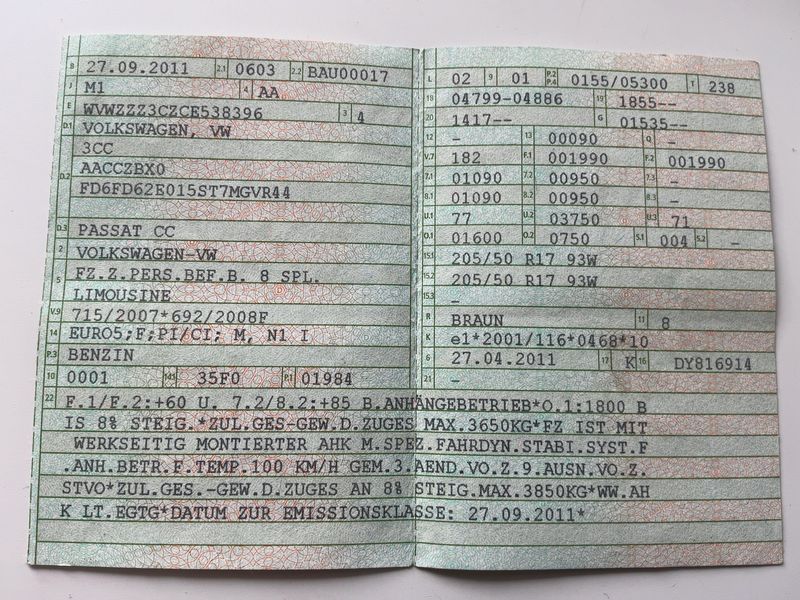 B 27.09.2011 2.1 0603 2.2 BAU00017
J M1 4 AA
E WVWZZZ3CZCE538396 3 4
D.1 VOLKSWAGEN, VW
3CC
D.2 AACCZBX0
FD6FD62E015ST7MGVR44
D.3 PASSAT CC
2 VOLKSWAGEN-VW
5 FZ.Z.PERS.BEF.B. 8 SPL.
LIMOUSINE
V.9 715/2007*692/2008F
14 EURO5;F;PI/CI; M, N1 I
P.3 BENZIN
10 0001 14.1 35F0 P.1 01984
L 02 9 01 P.2 P.4 0155/05300 T 238
18 04799-04886 19 1855--
20 1417-- G 01535--
12 - 13 00090 Q -
V.7 182 F.1 001990 F.2 001990
7.1 01090 7.2 00950 7.3 -
8.1 01090 8.2 00950 8.3 -
U.1 77 U.2 03750 U.3 71
O.1 01600 O.2 0750 S.1 004 S.2 -
15.1 205/50 R17 93W
15.2 205/50 R17 93W
15.3 -
R BRAUN 11 8
K e1*2001/116*0468*10
6 27.04.2011 17 K 16 DY816914
21 -
22 F.1/F.2:+60 U. 7.2/8.2:+85 B.ANHÄNGEBETRIEB*O.1:1800 B
IS 8% STEIG.*ZUL.GES-GEW.D.ZUGES MAX.3650KG*FZ IST MIT
WERKSEITIG MONTIERTER AHK M.SPEZ.FAHRDYN.STABI.SYST.F
.ANH.BETR.F.TEMP.100 KM/H GEM.3.AEND.VO.Z.9.AUSN.VO.Z.
STVO*ZUL.GES.-GEW.D.ZUGES AN 8% STEIG.MAX.3850KG*WW.AH
K LT.EGTG*DATUM ZUR EMISSIONSKLASSE: 27.09.2011*